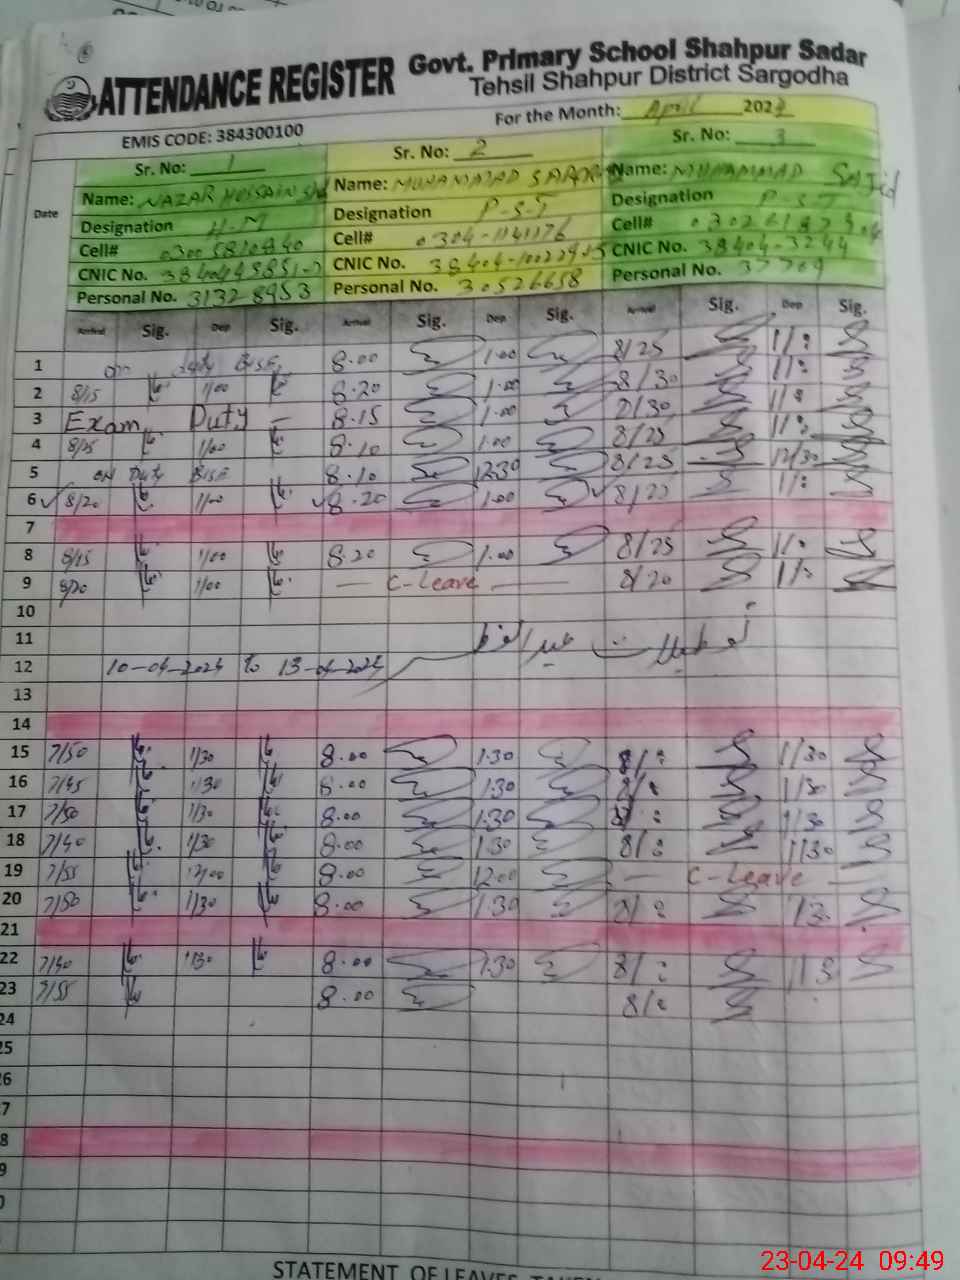 ATTENDANCE REGISTER Govt. Primary School Shahpur Sadar
Tehsil Shahpur District Sargodha
EMIS CODE: 384300100 For the Month: April 202
Date Sr. No: 1 Sr. No: 2 Sr. No: 3
Name: NAZAR HUSSAIN Name: MUHAMMAD Name: MUHAMMAD SAJid
Designation H-M Designation P-S-T Designation P-S-T
Cell# Cell# 0304-1141176 Cell#
CNIC No. CNIC No. CNIC No. 38404-3244
Personal No. 31328953 Personal No. 30526658 Personal No.
Arrival Sig. Dep Sig. Arrival Sig. Dep Sig. Arrival Sig. Dep Sig.
1 on duty BISE 8.00 1.00 8/25 11:
2 8/15 1/00 8.20 1.00 8/30 11:
3 Exam Duty - 8.15 1.00 8/30 11:
4 8/25 1/00 8.10 1.00 8/25 11:
5 on Duty BISE 8.10 12.30 8/25 12/30
6 8/20 1/00 8.20 1.00 8/25 11:
7
8 8/15 1/00 8.20 1.00 8/25 11:
9 8/20 1/00 — C-Leave — 8/20 11:
10
11 تعطیلات عیدالفطر
12 10-04-2024 to 13-04-2024
13
14
15 7/50 1/30 8.00 1.30 8/: 1/30
16 7/45 1/30 8.00 1.30 8/: 1/30
17 7/50 1/30 8.00 1.30 8/: 1/30
18 7/40 1/30 8.00 1.30 8/: 1/30
19 7/55 12/00 8.00 12.00 — C-Leave —
20 7/50 1/30 8.00 1.30 8/:
21
22 7/40 1/30 8.00 1.30 8/:
23 7/55 8.00 8/:
24
25
26
STATEMENT OF LEAVES TAKEN
23-04-24 09:49